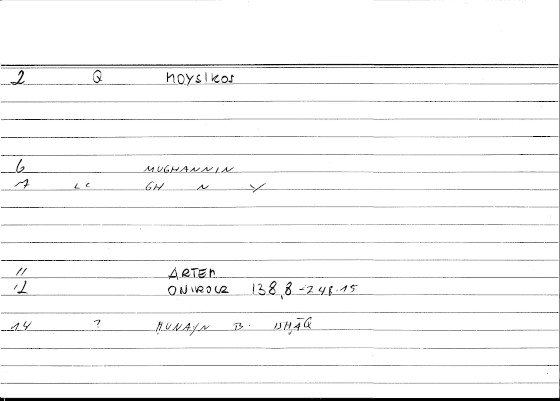 2 Q MOYSIKOS
6 MUGHANNIN
7 LC GH N Y
11 ARTEM
12 ONIROCR 138,8-248.15
14 ? HUNAYN B. ISHĀQ